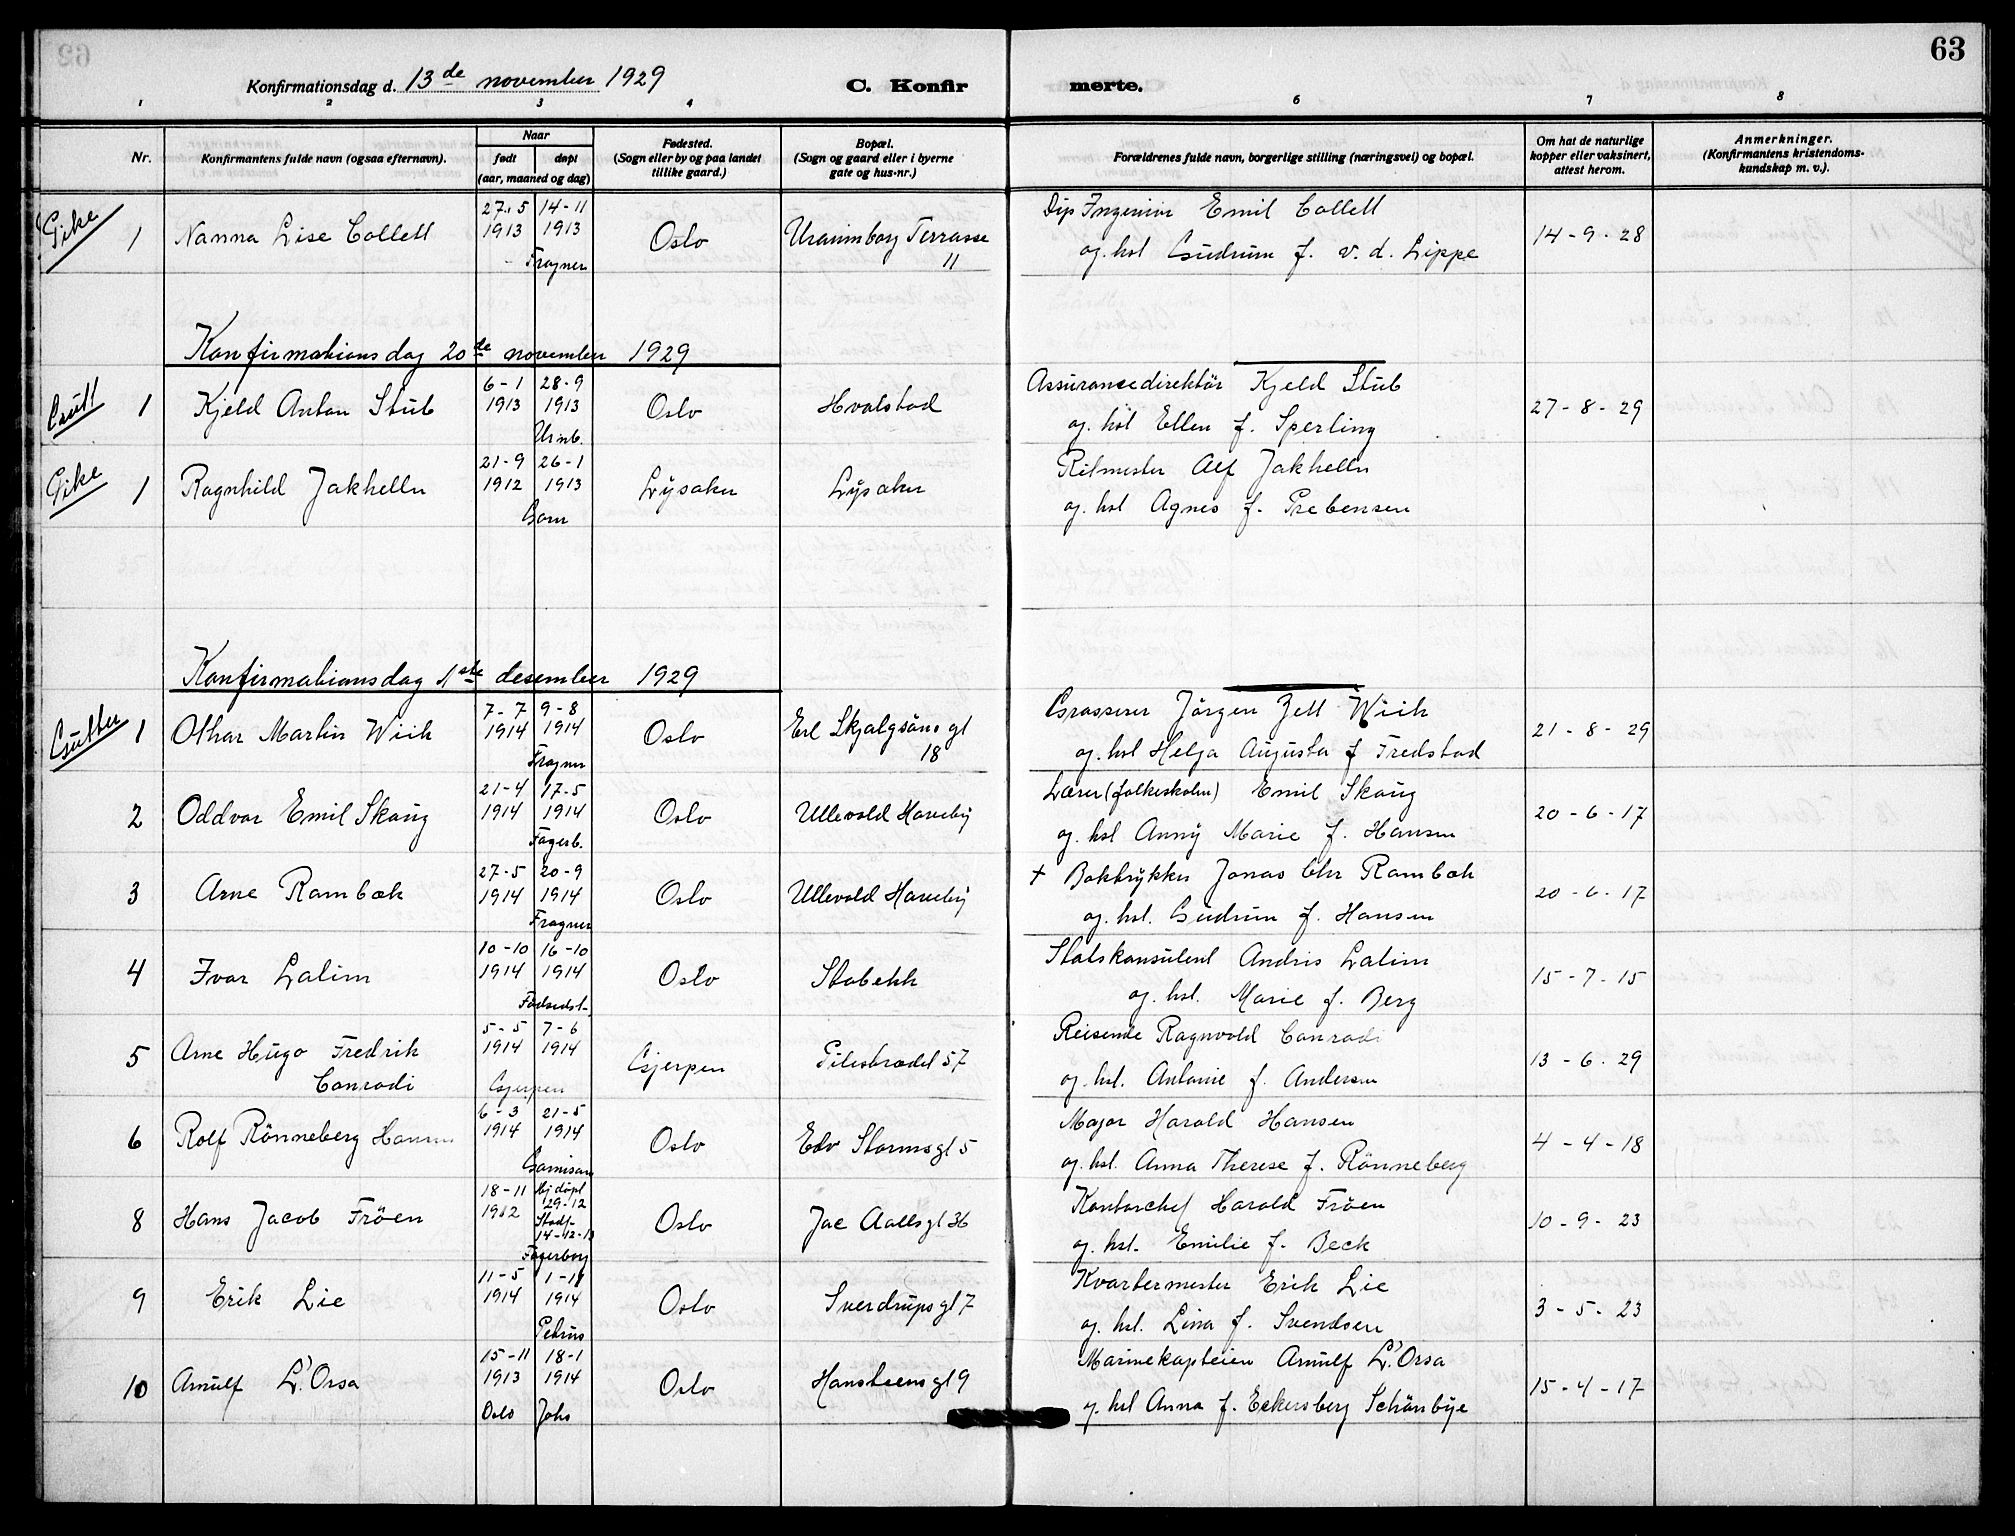 63
Konfirmationsdag d. 13de november 1929
C. Konfir merte.
1 2 3 4 6 7 8
Nr.
Konfirmantens fulde navn (ogsaa efternavn).
Naar
født døpt
(aar, maaned og dag)
Fødested.
(Sogn eller by og paa landet
tillike gaard.)
Bopæl.
(Sogn og gaard eller i byerne
gate og hus-nr.)
Forældrenes fulde navn, borgerlige stilling (næringsvei) og bopæl.
Om hat de naturlige
kopper eller vaksinert,
attest herom.
Anmerkninger.
(Konfirmantens kristendoms-
kundskap m. v.).
Pike 1 Nanna Lise Collett 27-5 1913 14-11 1913 Oslo Uranienborg Terrasse
Frogner 11
Dip Ingeniør Emil Collett 14-9-28
og. hst Gudrun f. v. d. Lippe
Konfirmationsdag 20de november 1929
Gutt 1 Kjeld Anton Stub 6-1 1913 28-9 1913 Oslo Hvalstad
Urnb.
Assurancedirektör Kjeld Stub 27-8-29
og. hst Ellen f. Sperling
Pike 1 Ragnhild Jakhelln 21-9 1912 26-1 1913 Lysaker Lysaker
Garn
Ritmester Alf Jakhelln
og. hst Agnes f. Prebensen
Konfirmationsdag 1ste desember 1929
Gutter 1 Othar Martin Wiik 7-7 1914 9-8 1914 Oslo Erl Skjalgsöns gt
Frogner 18
Grosserer Jörgen Zett Wiik 21-8-29
og. hst Helga Augusta f Fredstad
2 Oddvar Emil Skaug 21-4 1914 17-5 1914 Oslo Ullevold Haveby
Fagerb.
Lærer (folkeskolen) Emil Skaug 20-6-17
og. hst Anny Marie f. Hansen
3 Arne Rambæk 27-5 1914 20-9 1914 Oslo Ullevold Haveby
Frogner
+ Boktrykker Jonas Chr Rambæk 20-6-17
og. hst. Gudrun f. Hansen
4 Ivar Lalim 10-10 1914 16-10 1914 Oslo Stabekk
Födselst.
Statskonsulent Andris Lalim 15-7-15
og. hst. Marie f. Berg
5 Arne Hugo Fredrik 5-5 1914 7-6 1914 Gjerpen Pilestrædet 57
Conradi Gjerpen
Reisende Ragnvold Conradi 13-6-29
og. hst. Antonie f. Andersen
6 Rolf Rönneberg Hansen 6-3 1914 21-5 1914 Oslo Edv Stormsgt 5
Garnison
Major Harald Hansen 4-4-18
og. hst. Anna Therese f. Rönneberg
8 Hans Jacob Fröen 18-11 1912 Hj döpt 29-12 Stadf. 14-12-13 Oslo Jac Aallsgt 36
Fagerborg
Kontorchef Harald Fröen 10-9-23
og. hst. Emilie f. Beck
9 Erik Lie 11-5 1914 1-11 1914 Oslo Sverdrupsgt 7
Petrus
Kvartermester Erik Lie 3-5-23
og. hst. Lina f. Svendsen
10 Arnulf L'Orsa 15-11 1913 18-1 1914 Oslo Hansteensgt 9
Oslo Johs
Marinekaptein Arnulf L'Orsa 15-4-17
og. hst Anna f. Eckersberg Schönbye